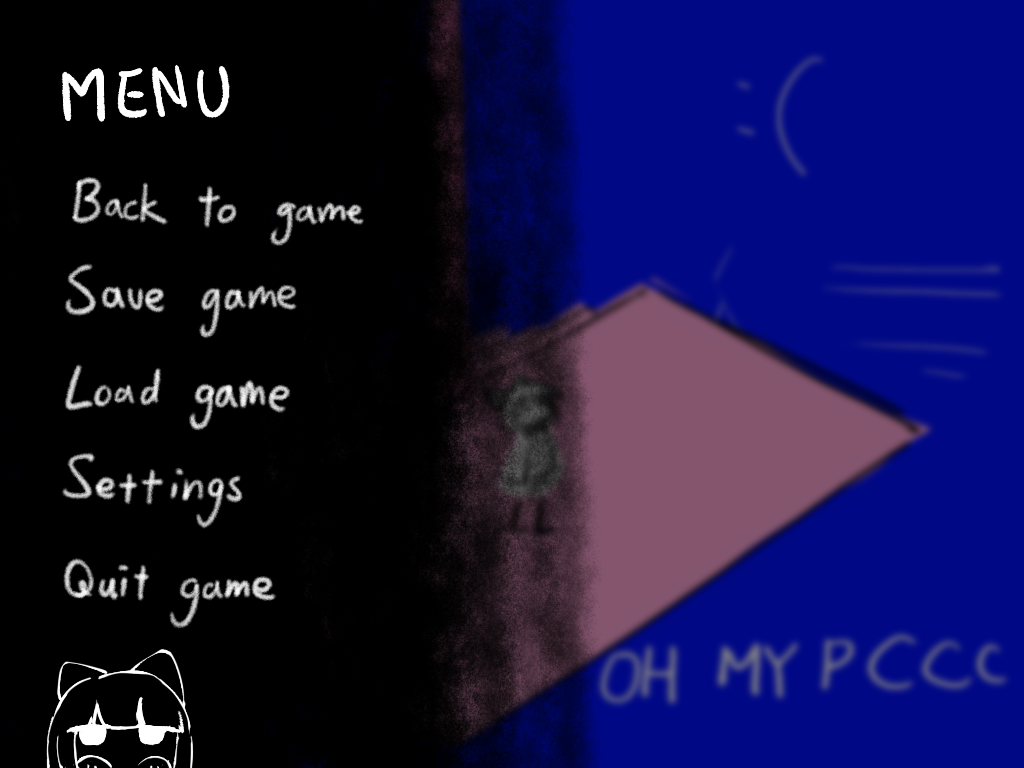 MENU
Back to game
Save game
Load game
Settings
Quit game
:(
OH MY PCCCC